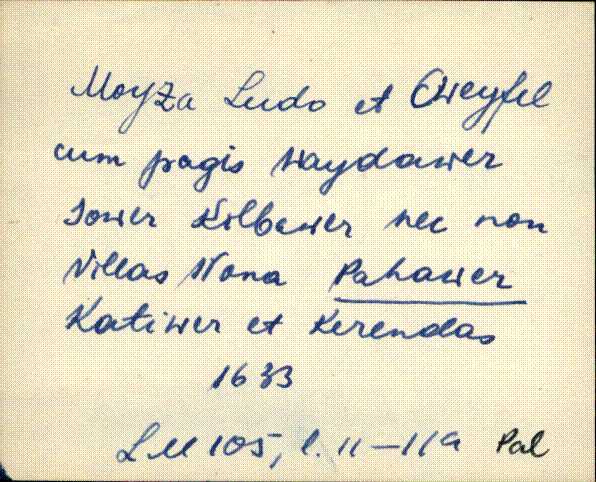 Moyza Ludo et Eweyfel
cum pagis Waydawer
Sower Kilbewer nec non
Villas Wona Pahawer
Katiwer et Kerendas
1633
LM 105, l. 11-11a Pal